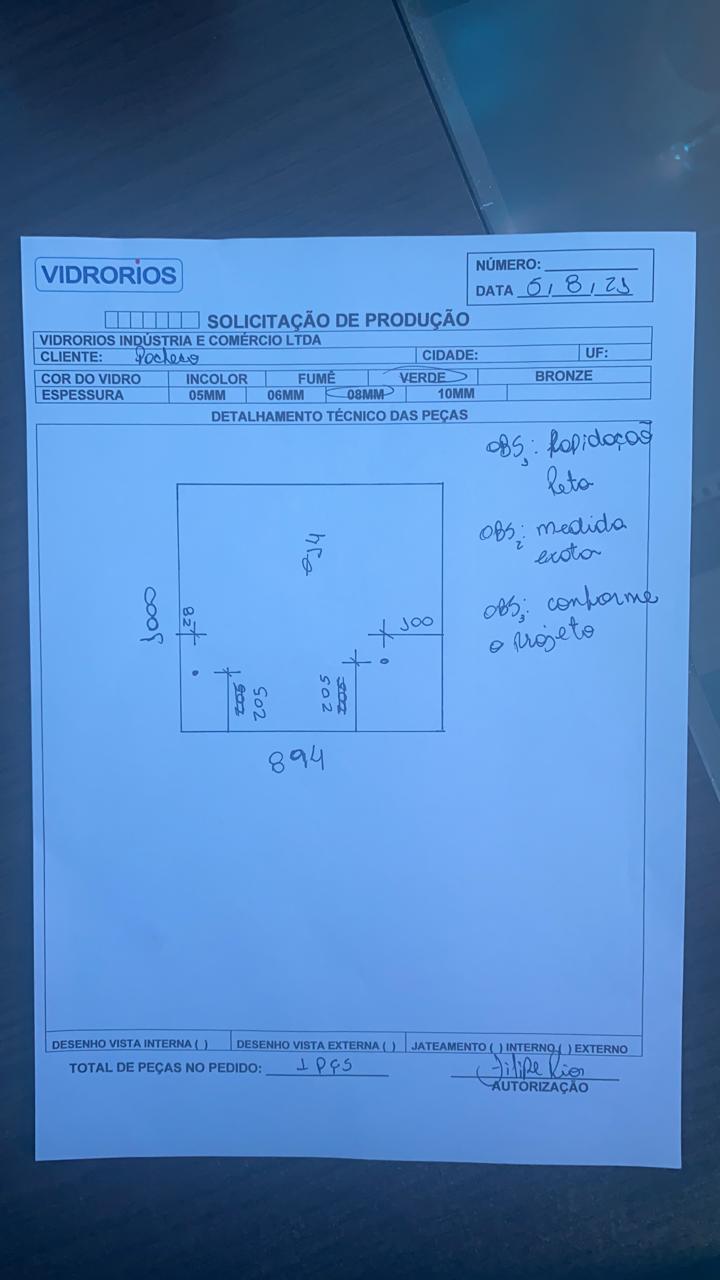 VIDRORIOS
NÚMERO:
DATA 6/8/25
SOLICITAÇÃO DE PRODUÇÃO
VIDRORIOS INDÚSTRIA E COMÉRCIO LTDA
CLIENTE: CIDADE: UF:
COR DO VIDRO INCOLOR FUMÊ VERDE BRONZE
ESPESSURA 05MM 06MM 08MM 10MM
DETALHAMENTO TÉCNICO DAS PEÇAS
OBS1: Lapidação
Reta
OBS2: medida
exata
OBS3: conforme
o projeto
1000
82
100
502
502
894
DESENHO VISTA INTERNA ( ) DESENHO VISTA EXTERNA ( ) JATEAMENTO ( ) INTERNO ( ) EXTERNO
TOTAL DE PEÇAS NO PEDIDO: 1 PÇS
Filipe Rios
AUTORIZAÇÃO